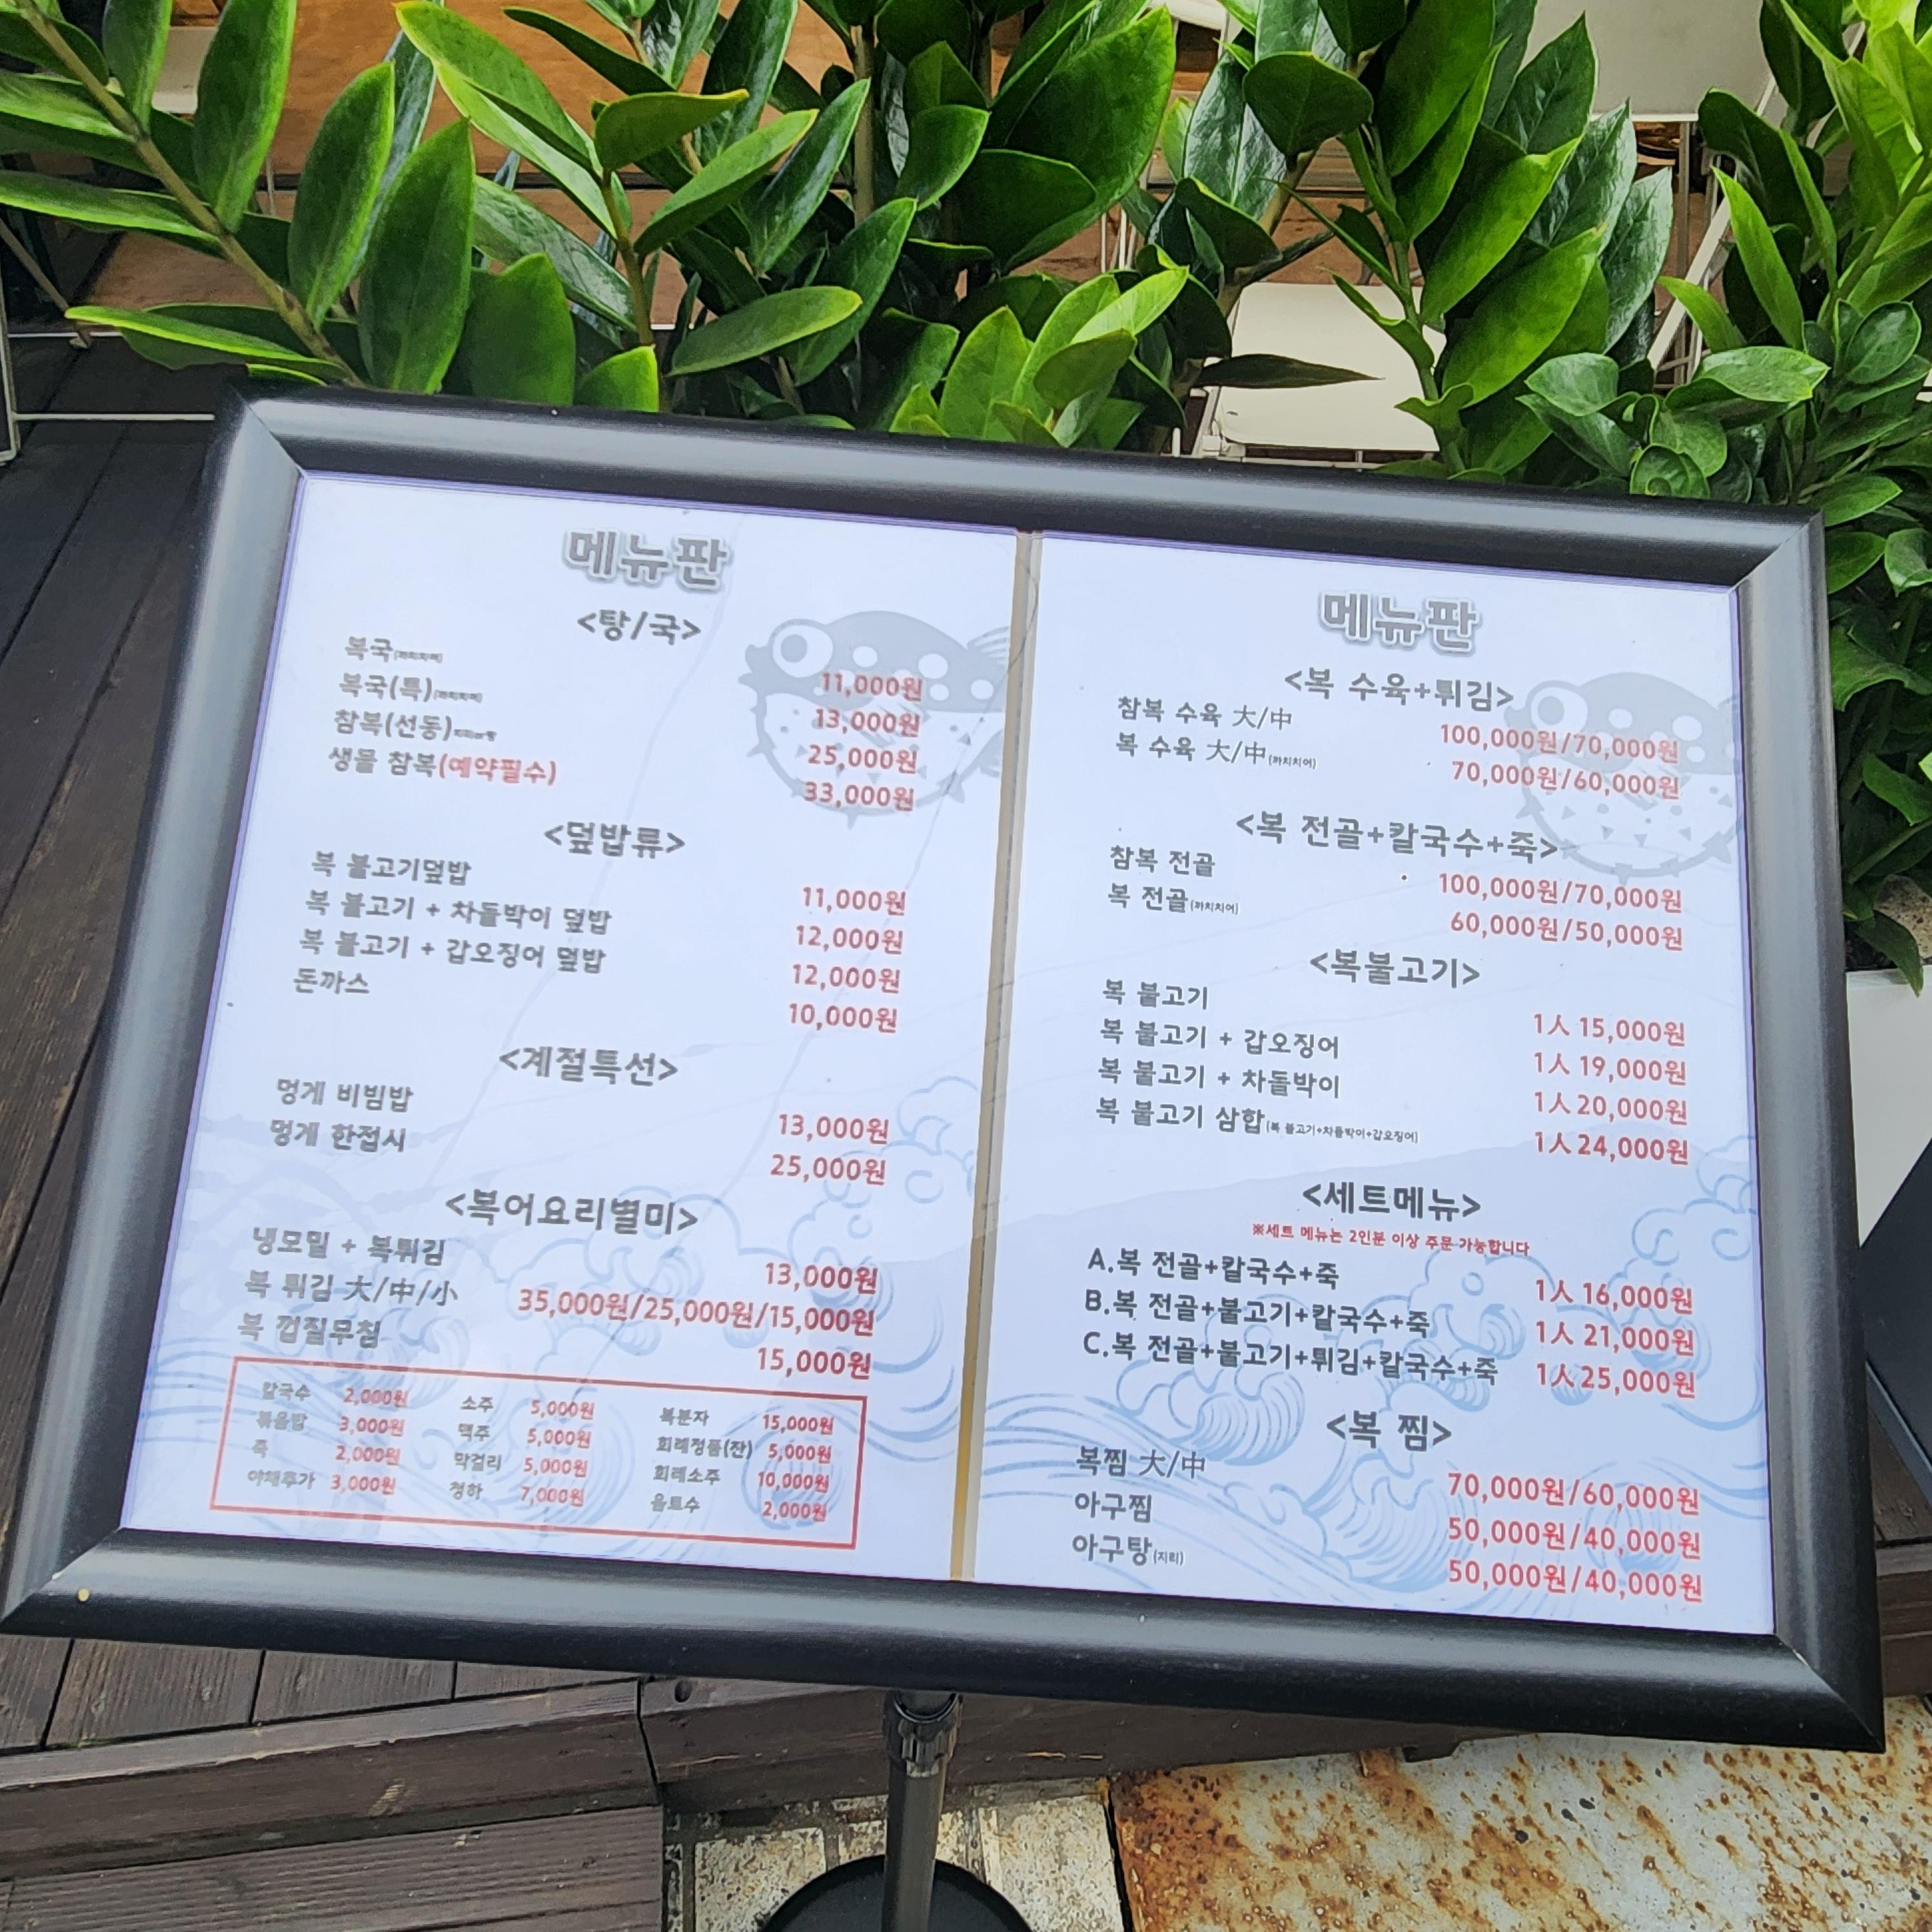 메뉴판
<탕/국>
복국(까치치어) 11,000원
복국(특)(까치치어) 13,000원
참복(선동) 25,000원
생물 참복(예약필수) 33,000원
<덮밥류>
복 불고기덮밥 11,000원
복 불고기 + 차돌박이 덮밥 12,000원
복 불고기 + 갑오징어 덮밥 12,000원
돈까스 10,000원
<계절특선>
멍게 비빔밥 13,000원
멍게 한접시 25,000원
<복어요리별미>
냉모밀 + 복튀김 13,000원
복 튀김 大/中/小 35,000원/25,000원/15,000원
복 껍질무침 15,000원
칼국수 2,000원 소주 5,000원 복분자 15,000원
볶음밥 3,000원 맥주 5,000원 희레정종(잔) 5,000원
죽 2,000원 막걸리 5,000원 희레소주 10,000원
야채추가 3,000원 청하 7,000원 음료수 2,000원
메뉴판
<복 수육+튀김>
참복 수육 大/中 100,000원/70,000원
복 수육 大/中(까치치어) 70,000원/60,000원
<복 전골+칼국수+죽>
참복 전골 100,000원/70,000원
복 전골(까치치어) 60,000원/50,000원
<복불고기>
복 불고기 1人 15,000원
복 불고기 + 갑오징어 1人 19,000원
복 불고기 + 차돌박이 1人 20,000원
복 불고기 삼합(복 불고기+차돌박이+갑오징어) 1人 24,000원
<세트메뉴>
※세트 메뉴는 2인분 이상 주문 가능합니다
A.복 전골+칼국수+죽 1人 16,000원
B.복 전골+불고기+칼국수+죽 1人 21,000원
C.복 전골+불고기+튀김+칼국수+죽 1人 25,000원
<복 찜>
복찜 大/中 70,000원/60,000원
아구찜 50,000원/40,000원
아구탕(지리) 50,000원/40,000원